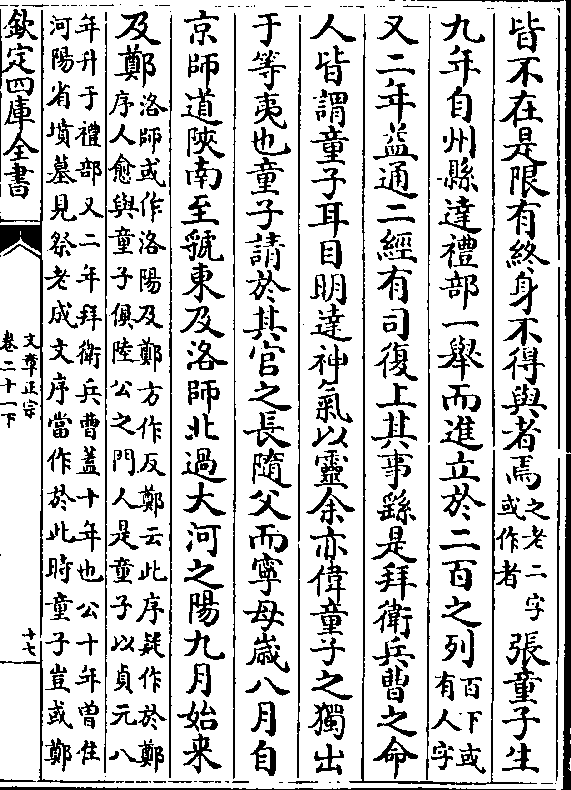 皆不在是限有終身不得與者焉之老二字或作者張童子生
九年自州縣達禮部一舉而進立於二百之列百下或有人字
又二年益通二經有司復上其事繇是拜衛兵曹之命
人皆謂童子耳目明達神氣以靈余亦偉童子之獨出
于等夷也童子請於其官之長隨父而寧母歳八月自
京師道陜南至虢東及洛師北過大河之陽九月始来
及鄭洛師或作洛陽及鄭方作反鄭云此序疑作於鄭序人愈與童子俱陸公之門人是童子以貞元八
年升于禮部又二年拜衛兵曹蓋十年也公十年曽徃
河陽省墳墓見祭老成文序當作於此時童子豈或鄭
欽定四庫全書
文章正宗
卷二十一下
十七